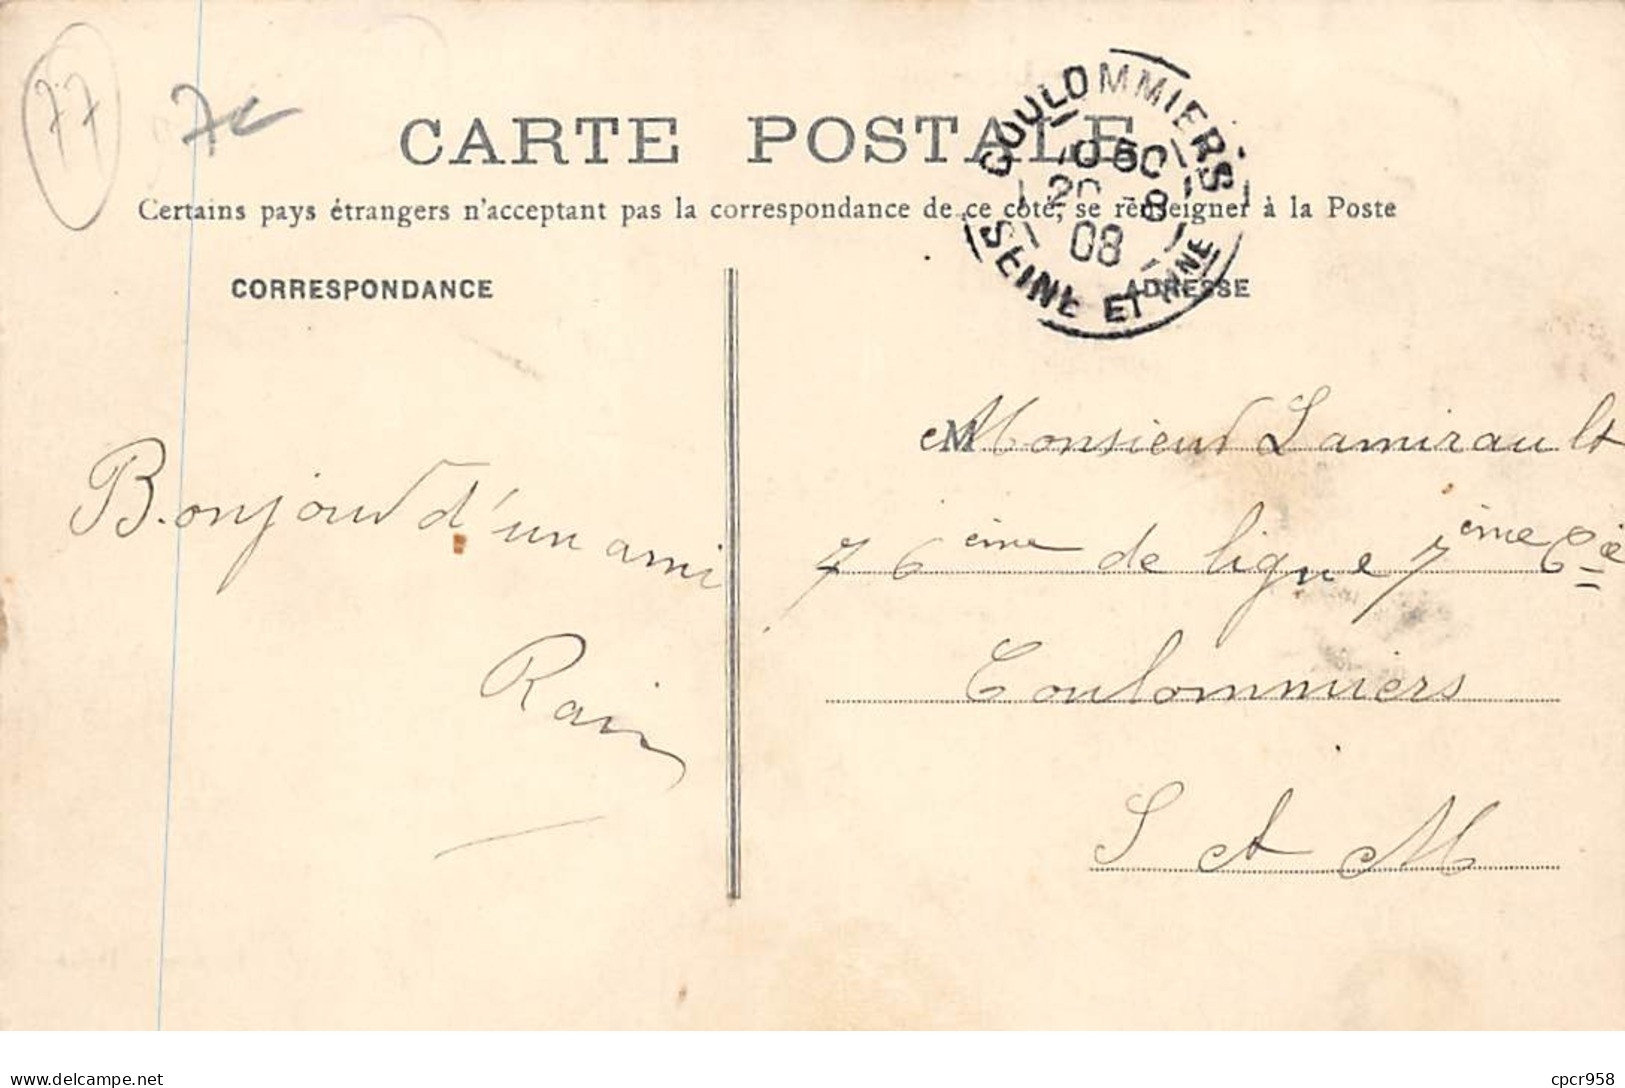 77
7e
CARTE POSTALE
COULOMMIERS
20 8
08
SEINE ET MARNE
Certains pays étrangers n'acceptent pas la correspondance de ce côté, se renseigner à la Poste
CORRESPONDANCE
ADRESSE
Bonjour d'un ami
Monsieur Lamirault
76ème de ligne 7ème Cie
Coulommiers
S et M
delcampe.net
cpcr958